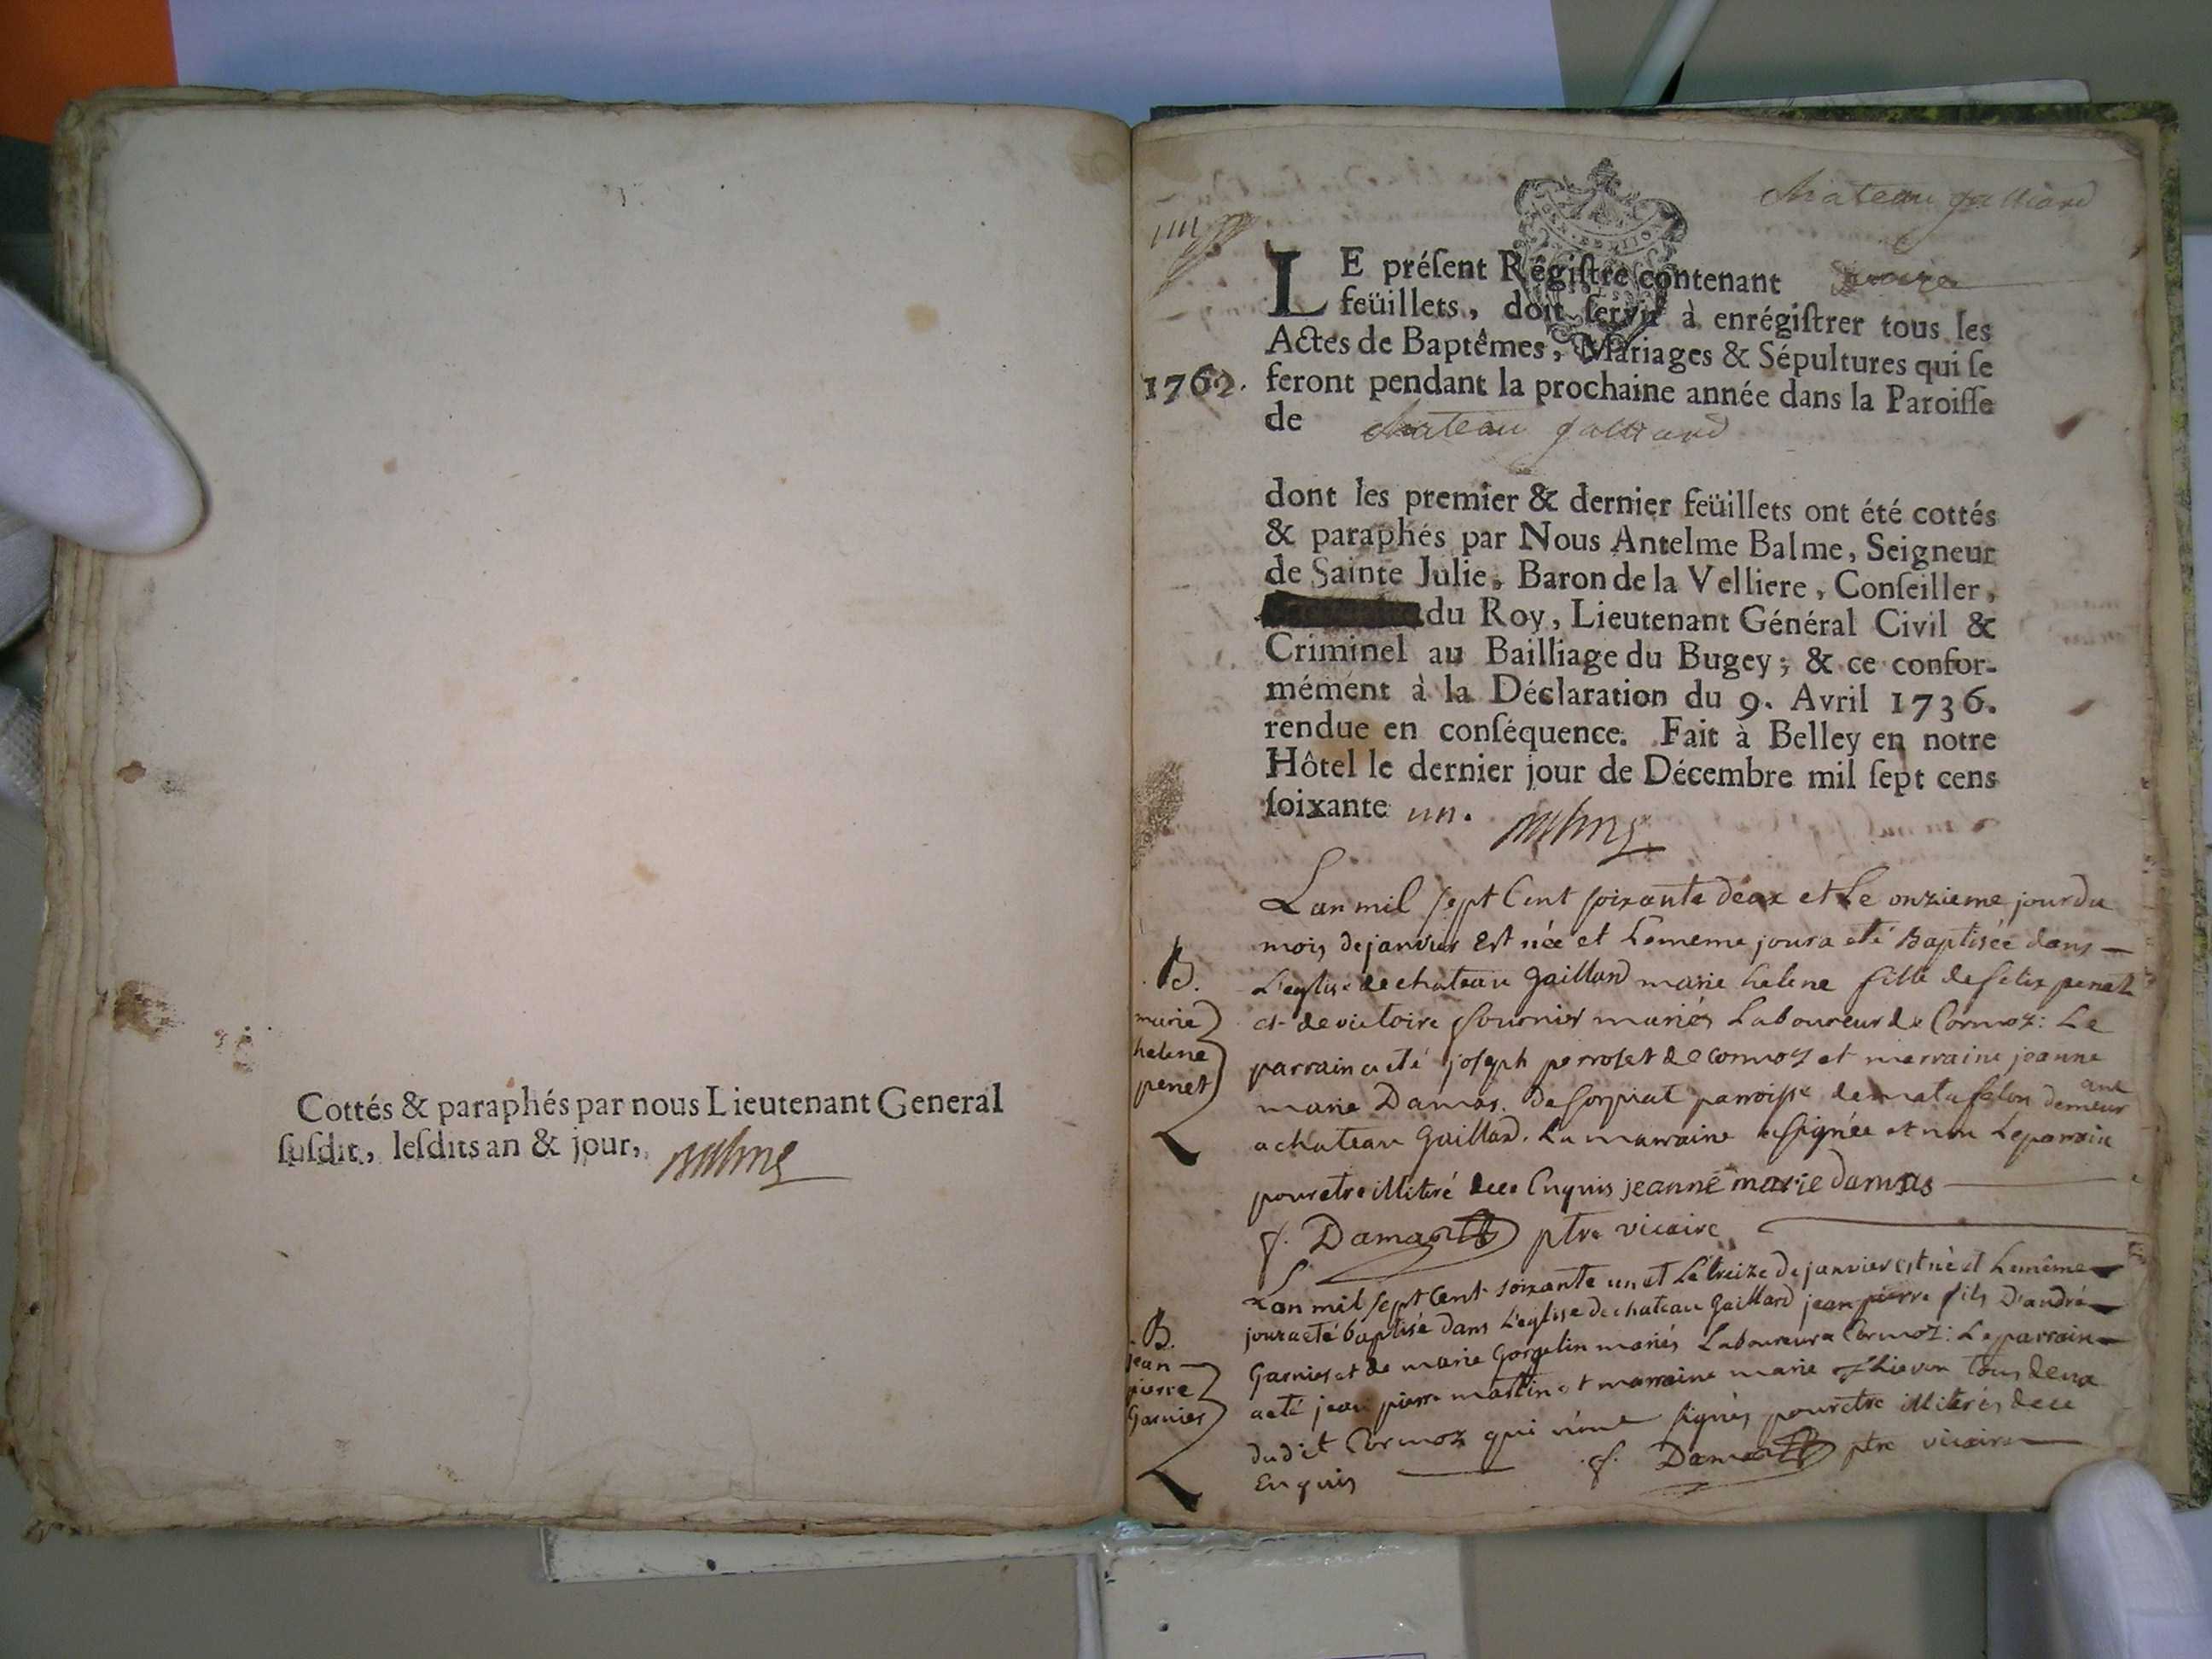 Cottés & paraphés par nous Lieutenant General
ſuſdit, leſdits an & jour,
Chateau galliard
LE préſent Régiſtre contenant
feüillets, doit ſervir à enrégiſtrer tous les
Actes de Baptêmes, Mariages & Sépultures qui ſe
1762. feront pendant la prochaine année dans la Paroiſſe
de chateau galliard
dont les premier & dernier feüillets ont été cottés
& paraphés par Nous Antelme Balme, Seigneur
de Sainte Julie, Baron de la Velliere, Conſeiller,
du Roy, Lieutenant Général Civil &
Criminel au Bailliage du Bugey; & ce confor-
mément à la Déclaration du 9. Avril 1736.
rendue en conſéquence. Fait à Belley en notre
Hôtel le dernier jour de Décembre mil ſept cens
ſoixante un. Balme
Lan mil sept Cent soixante deux et Le onzieme jour du
mois de janvier Est née et Lememe jour a eté Baptisée dans
L'eglise de chateau Gaillard marie helene fille de felix penet
et de victoire fournier mariés Laboureur de Cormoz: Le
parrain a eté joseph perroset de cormoz et marraine jeanne
marie Damas. De sorpiat parroisse de matafelon demeurant
a chateau Gaillard. La marraine a signée et non Leparrain
pour etre illiteré de ce Enquis jeanne marie damas
B.
marie
helene
penet
f. Damas ptre vicaire
Lan mil sept Cent soixante un et Le treize de janvier est né et Lemême
jour a eté baptisé dans L'eglise de chateau Gaillard jean pierre fils D'andré
Garnier et de marie Gorgelin mariés Laboureur a Cormoz: Leparrain
a eté jean pierre martin et marraine marie tous deux
dudit Cormoz qui n'ont signés pour etre illiterés de ce
Enquis f. Damas ptre vicaire
B.
jean
pierre
Garnier